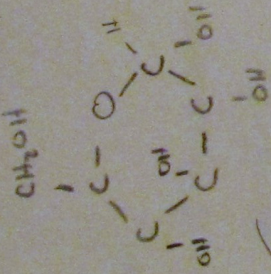 CH₂OH
C O H
C OH C
OH C C OH
OH